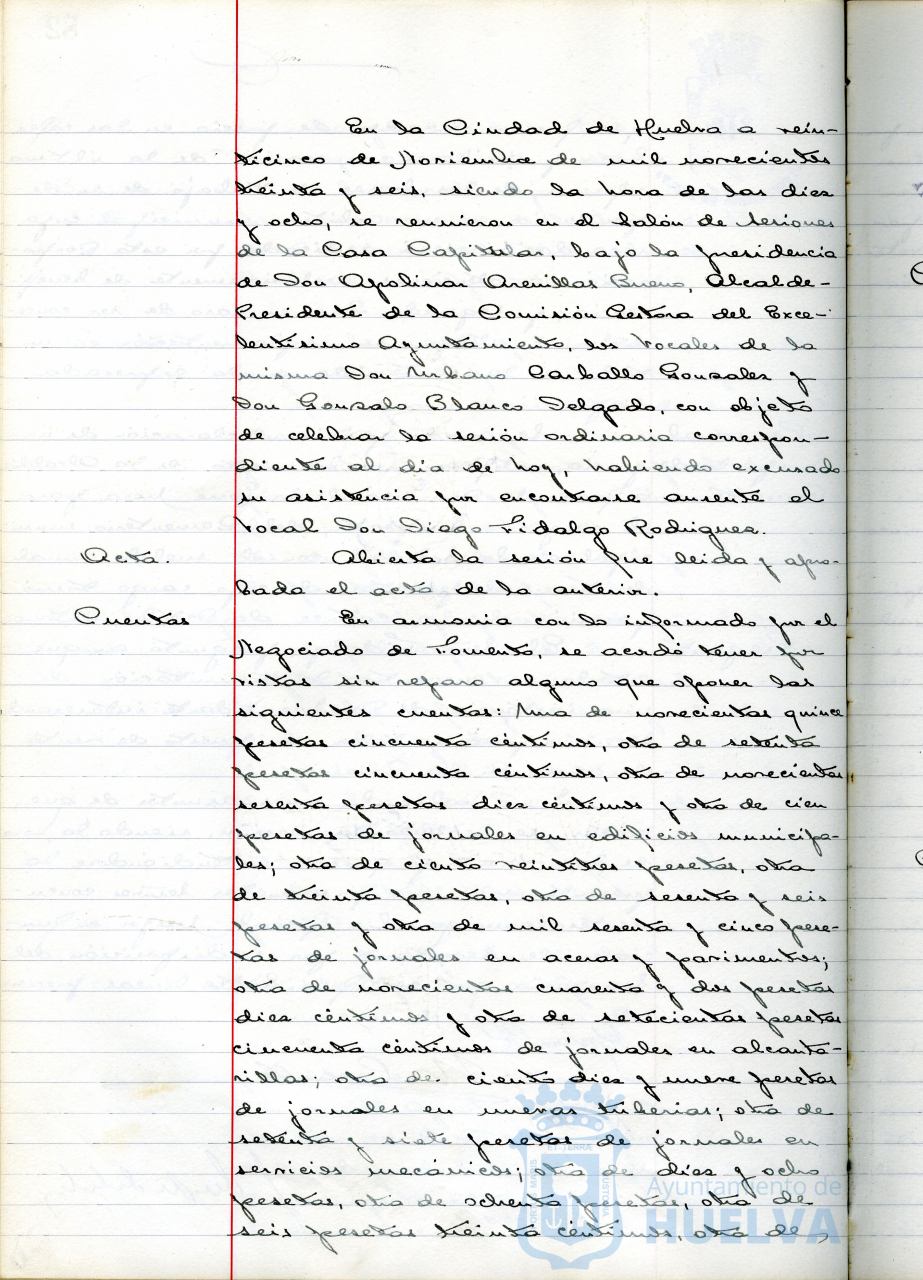 En la Ciudad de Huelva a vein-
ticinco de Noviembre de mil novecientos
treinta y seis, siendo la hora de las diez
y ocho, se reunieron en el Salón de Sesiones
de la Casa Capitular, bajo la presidencia
de Don Apolinar Arenillas Bueno, Alcalde-
Presidente de la Comisión Gestora del Exce-
lentísimo Ayuntamiento, los Vocales de la
misma Don Urbano Carballo Gonzalez y
Don Gonzalo Blanco Delgado, con objeto
de celebrar la sesión ordinaria correspon-
diente al dia de hoy, habiendo excusado
su asistencia por encontrarse ausente el
Vocal Don Diego Fidalgo Rodriguez.
Acta. Abierta la sesión fue leida y apro-
bada el acta de la anterior.
Cuentas En armonia con lo informado por el
Negociado de Fomento, se acordó tener por
vistas sin reparo alguno que oponer las
siguientes cuentas: Una de novecientas quince
pesetas cincuenta céntimos, otra de setenta
pesetas cincuenta céntimos, otra de novecientas
sesenta pesetas diez céntimos y otra de cien
pesetas de jornales en edificios municipa-
les; otra de ciento veintitres pesetas, otra
de treinta pesetas, otra de sesenta y seis
pesetas y otra de mil sesenta y cinco pese-
tas de jornales en aceras y pavimentos;
otra de novecientas cuarenta y dos pesetas
diez céntimos y otra de setecientas pesetas
cincuenta céntimos de jornales en alcanta-
rillas; otra de ciento diez y nueve pesetas
de jornales en nuevas tuberias; otra de
setenta y siete pesetas de jornales en
servicios mecánicos; otra de diez y ocho
pesetas, otra de ochenta pesetas, otra de
seis pesetas treinta céntimos, otra de
Ayuntamiento de
HUELVA